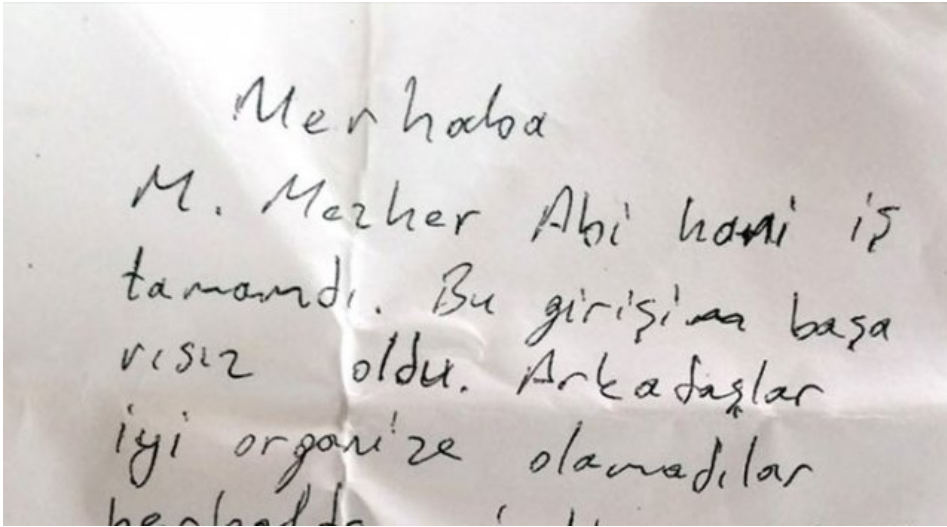 Merhaba
M. Mezher Abi hani iş
tamamdı. Bu girişim başa
rısız oldu. Arkadaşlar
iyi organize olamadılar